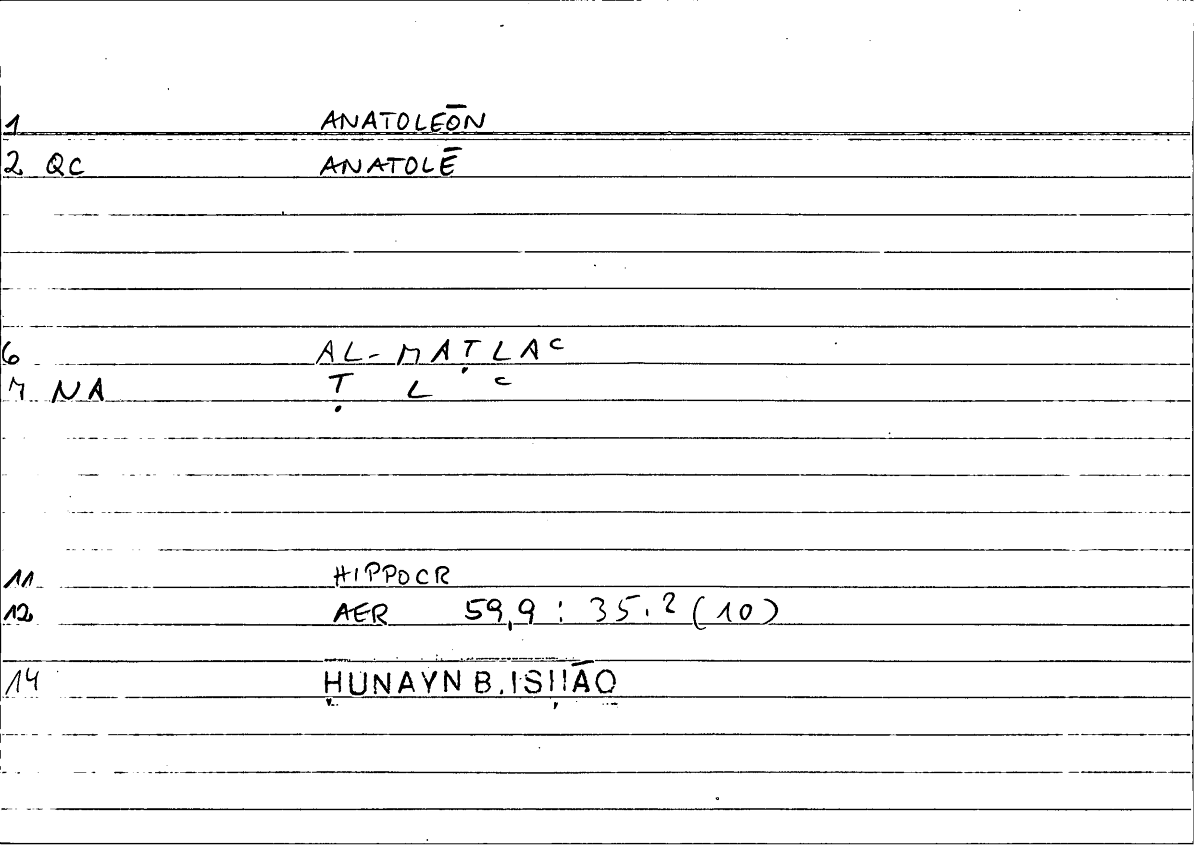 1 ANATOLEŌN
2 QC ANATOLĒ
6 AL-MAṬLAᶜ
7 NA Ṭ L ᶜ
11 HIPPOCR
12 AER 59,9 : 35.2 (10)
14 ḤUNAYN B. ISḤĀQ